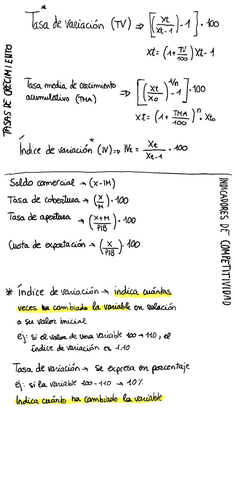 TASAS DE CRECIMIENTO
*
Tasa de variación (TV) ⇒ [(xt/xt-1) - 1] · 100
xt = (1 + TV/100) xt-1
Tasa media de crecimiento
acumulativo (TMA) ⇒ [(xt/xo)^1/n - 1] · 100
xt = (1 + TMA/100)^n · xto
*
Índice de variación (IV) ⇒ IVt = Xt/Xt-1 · 100
INDICADORES DE COMPETITIVIDAD
Saldo comercial → (X-IM)
Tasa de cobertura → (X/M) · 100
Tasa de apertura → (X+M/PIB) · 100
Cuota de exportación → (X/PIB) · 100
* Índice de variación → indica cuántas
veces ha cambiado la variable en relación
a su valor inicial
ej: si el valor de una variable 100 → 110, el
índice de variación es 1.10
Tasa de variación → se expresa en porcentaje
ej: si la variable 100 - 110 → 10%
Indica cuánto ha cambiado la variable